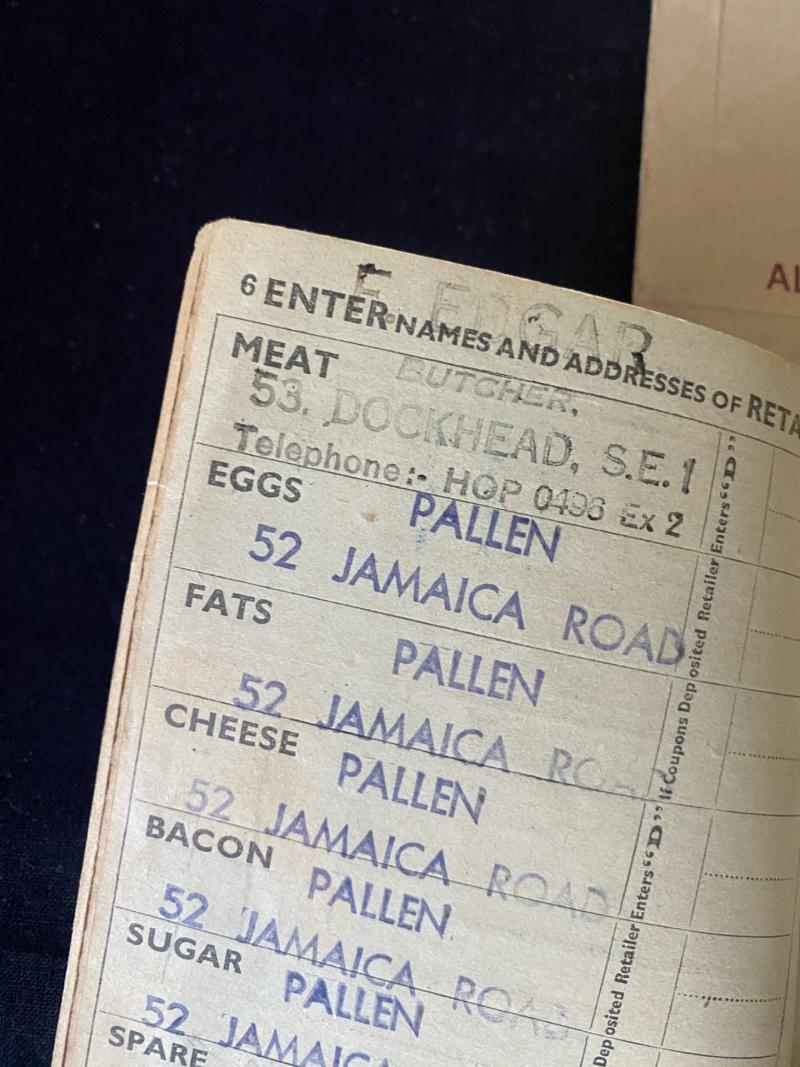 AL
F. EDGAR
6 ENTER NAMES AND ADDRESSES OF RETA
MEAT
BUTCHER,
53. DOCKHEAD, S.E.1
Telephone:- HOP 0496 Ex 2
EGGS
PALLEN
52 JAMAICA ROAD
FATS
PALLEN
52 JAMAICA ROAD
CHEESE
PALLEN
52 JAMAICA ROAD
BACON
PALLEN
52 JAMAICA ROAD
SUGAR
PALLEN
52 JAMAICA
SPARE
If Coupons Deposited Retailer Enters "D"
Deposited Retailer Enters "D"